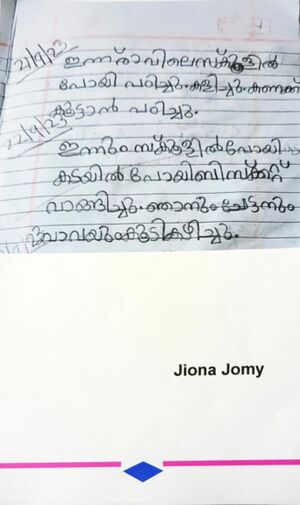 21/9/23 ഇന്ന് രാവിലെ സ്കൂളിൽ
പോയി പഠിച്ചു. കളിച്ചു. കണക്ക്
കൂട്ടാൻ പഠിച്ചു.
22/9/23
ഇന്നും സ്കൂളിൽ പോയി
കടയിൽ പോയി ബിസ്ക്കറ്റ്
വാങ്ങിച്ചു. ഞാനും ചേട്ടനും
വാവയും കൂടി കഴിച്ചു.
Jiona Jomy